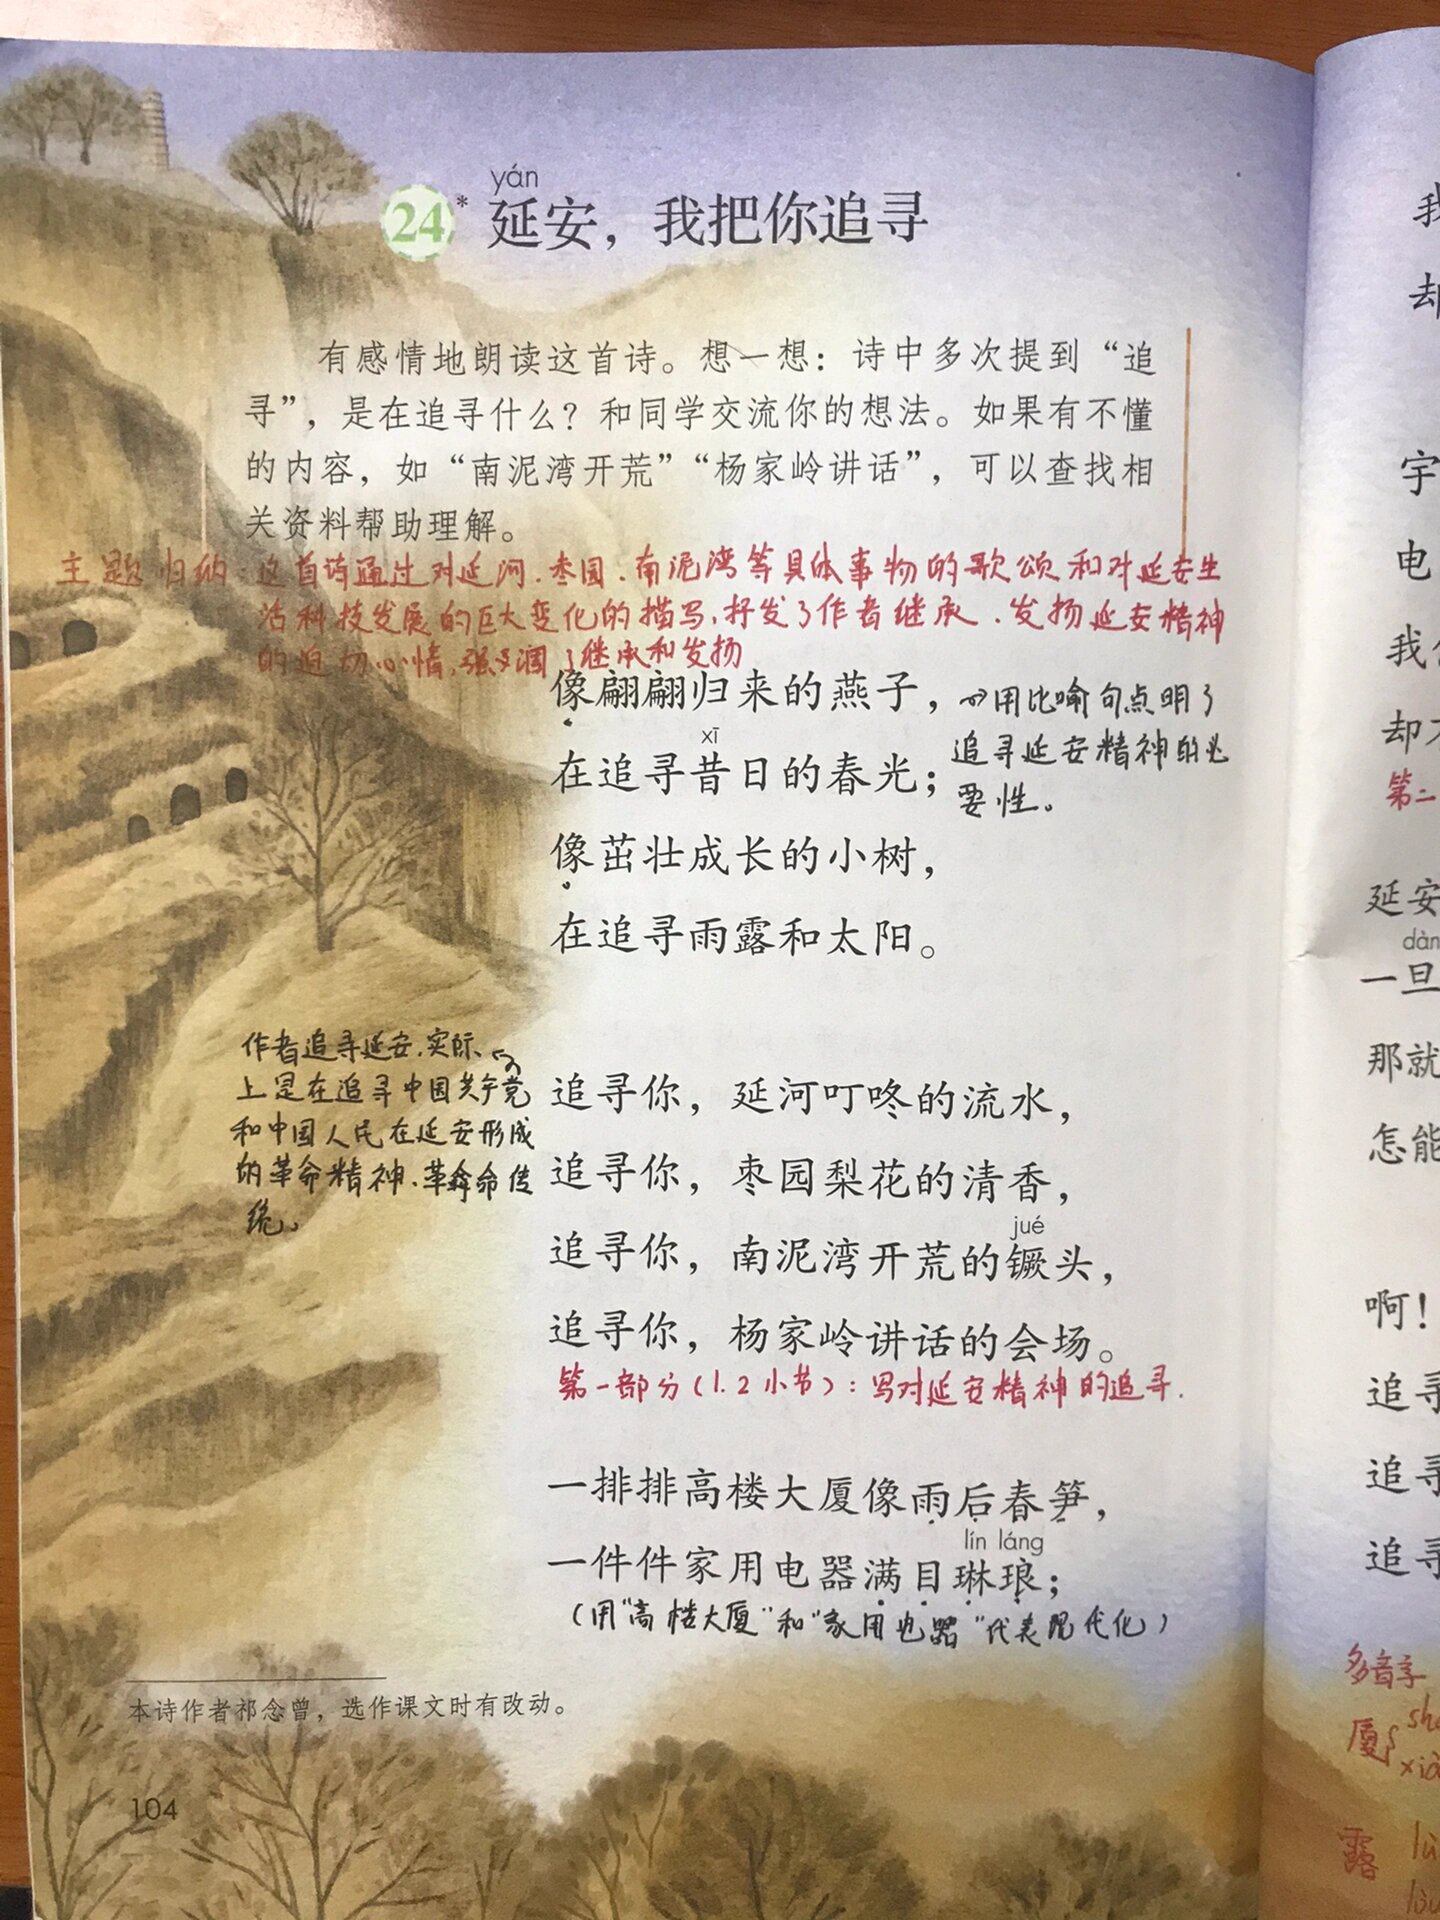 yán
24* 延安，我把你追寻
有感情地朗读这首诗。想一想：诗中多次提到“追
寻”，是在追寻什么？和同学交流你的想法。如果有不懂
的内容，如“南泥湾开荒”“杨家岭讲话”，可以查找相
关资料帮助理解。
主题归纳：这首诗通过对延河、枣园、南泥湾等具体事物的歌颂和对延安生
活科技发展的巨大变化的描写，抒发了作者继承、发扬延安精神
的迫切心情，强调了继承和发扬
像翩翩归来的燕子，
用比喻句点明了
追寻延安精神的必
要性。
xī
在追寻昔日的春光；
像茁壮成长的小树，
在追寻雨露和太阳。
作者追寻延安，实际
上是在追寻中国共产党
和中国人民在延安形成
的革命精神、革命传
统。
追寻你，延河叮咚的流水，
追寻你，枣园梨花的清香，
jué
追寻你，南泥湾开荒的镢头，
追寻你，杨家岭讲话的会场。
第一部分（1.2小节）：写对延安精神的追寻.
一排排高楼大厦像雨后春笋，
lín láng
一件件家用电器满目琳琅；
（用“高楼大厦”和“家用电器”代表现代化）
本诗作者祁念曾，选作课文时有改动。
104
我
却
宇
电
我
却
第二
延安
dàn
一旦
那就
怎能
啊！
追寻
追寻
追寻
多音字
厦
露